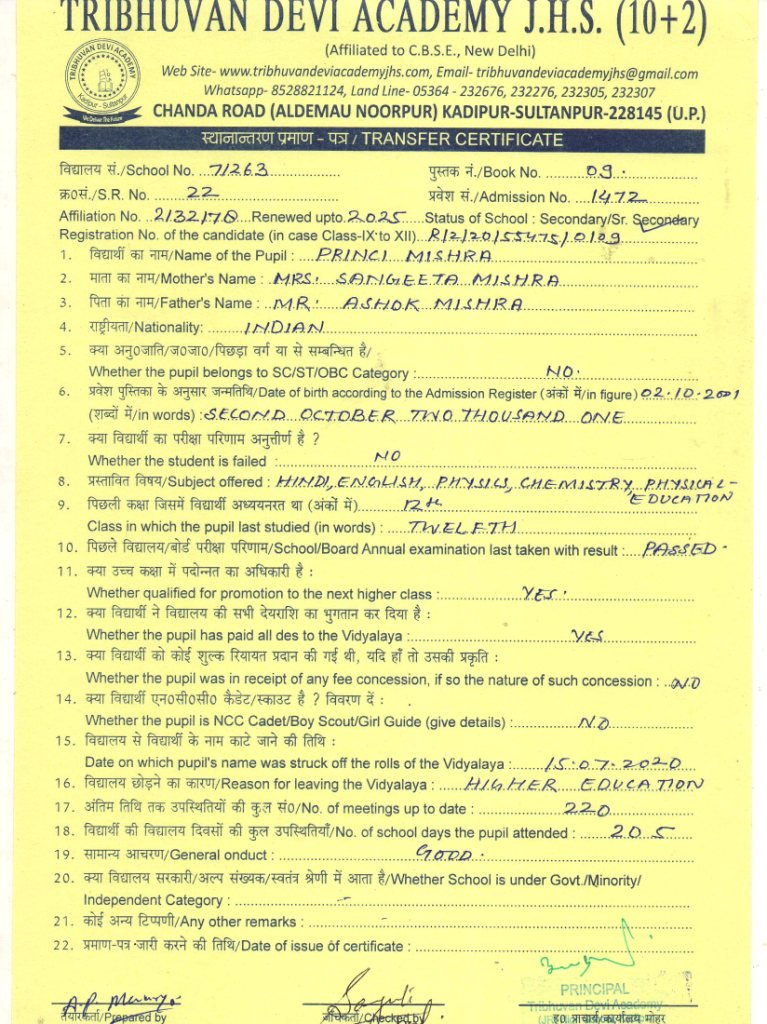 TRIBHUVAN DEVI ACADEMY J.H.S. (10+2)
(Affiliated to C.B.S.E., New Delhi)
TRIBHUVAN DEVI ACADEMY
Kadipur - Sultanpur
We Deliver The Future
Web Site- www.tribhuvandeviacademyjhs.com, Email- tribhuvandeviacademyjhs@gmail.com
Whatsapp- 8528821124, Land Line- 05364 - 232676, 232276, 232305, 232307
CHANDA ROAD (ALDEMAU NOORPUR) KADIPUR-SULTANPUR-228145 (U.P.)
स्थानान्तरण प्रमाण - पत्र / TRANSFER CERTIFICATE
विद्यालय सं./School No. 71263 पुस्तक नं./Book No. 09.
क्र०सं./S.R. No. 22 प्रवेश सं./Admission No. 1472
Affiliation No. 2132178 Renewed upto 2025 Status of School : Secondary/Sr. Secondary
Registration No. of the candidate (in case Class-IX to XII) R/2/20/55475/0109
1. विद्यार्थी का नाम/Name of the Pupil : PRINCI MISHRA
2. माता का नाम/Mother's Name : MRS. SANGEETA MISHRA
3. पिता का नाम/Father's Name : MR. ASHOK MISHRA
4. राष्ट्रीयता/Nationality: INDIAN
5. क्या अनु०जाति/ज०जा०/पिछड़ा वर्ग या से सम्बन्धित है/
Whether the pupil belongs to SC/ST/OBC Category : NO.
6. प्रवेश पुस्तिका के अनुसार जन्मतिथि/Date of birth according to the Admission Register (अंकों में/in figure) 02.10.2001
(शब्दों में/in words) : SECOND OCTOBER TWO THOUSAND ONE
7. क्या विद्यार्थी का परीक्षा परिणाम अनुत्तीर्ण है ?
Whether the student is failed : NO
8. प्रस्तावित विषय/Subject offered : HINDI, ENGLISH, PHYSICS, CHEMISTRY, PHYSICAL-
EDUCATION
9. पिछली कक्षा जिसमें विद्यार्थी अध्ययनरत था (अंकों में) 12th
Class in which the pupil last studied (in words) : TWELETH
10. पिछले विद्यालय/बोर्ड परीक्षा परिणाम/School/Board Annual examination last taken with result : PASSED.
11. क्या उच्च कक्षा में पदोन्नत का अधिकारी है :
Whether qualified for promotion to the next higher class : YES.
12. क्या विद्यार्थी ने विद्यालय की सभी देयराशि का भुगतान कर दिया है :
Whether the pupil has paid all des to the Vidyalaya : YES
13. क्या विद्यार्थी को कोई शुल्क रियायत प्रदान की गई थी, यदि हाँ तो उसकी प्रकृति :
Whether the pupil was in receipt of any fee concession, if so the nature of such concession : NO
14. क्या विद्यार्थी एन०सी०सी० कैडेट/स्काउट है ? विवरण दें :
Whether the pupil is NCC Cadet/Boy Scout/Girl Guide (give details) : NO
15. विद्यालय से विद्यार्थी के नाम काटे जाने की तिथि :
Date on which pupil's name was struck off the rolls of the Vidyalaya : 15.07.2020
16. विद्यालय छोड़ने का कारण/Reason for leaving the Vidyalaya : HIGHER EDUCATION
17. अंतिम तिथि तक उपस्थितियों की कुल सं०/No. of meetings up to date : 220
18. विद्यार्थी की विद्यालय दिवसों की कुल उपस्थितियाँ/No. of school days the pupil attended : 205
19. सामान्य आचरण/General onduct : GOOD.
20. क्या विद्यालय सरकारी/अल्प संख्यक/स्वतंत्र श्रेणी में आता है/Whether School is under Govt./Minority/
Independent Category : -
21. कोई अन्य टिप्पणी/Any other remarks : -
22. प्रमाण-पत्र जारी करने की तिथि/Date of issue of certificate :
PRINCIPAL
Tribhuvan Devi Academy
तैयारकर्ता/Prepared by जांचकर्ता/Checked by ह० प्राचार्य/कार्यालय मोहर